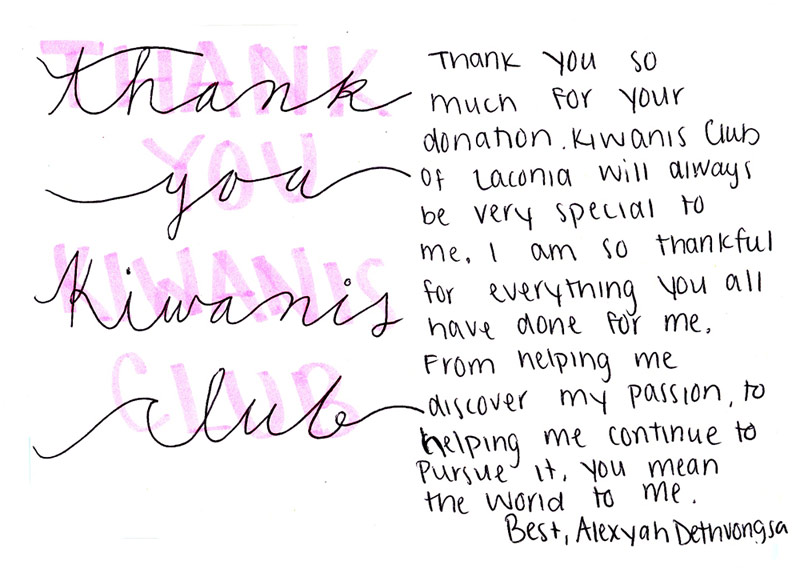 THANK
thank
YOU
you
KIWANIS
Kiwanis
CLUB
club
Thank you so
much for your
donation. Kiwanis Club
of Laconia will always
be very special to
me. I am so thankful
for everything you all
have done for me.
From helping me
discover my passion, to
helping me continue to
pursue it, you mean
the world to me.
Best, Alexyah Dethvongsa